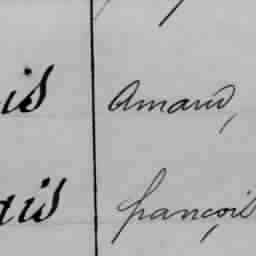 is Amand,
ais françois